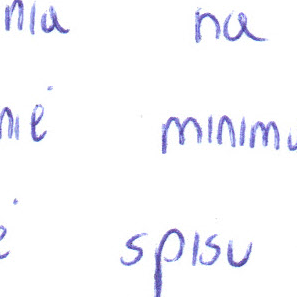 nia na
nie minimu
e spisu